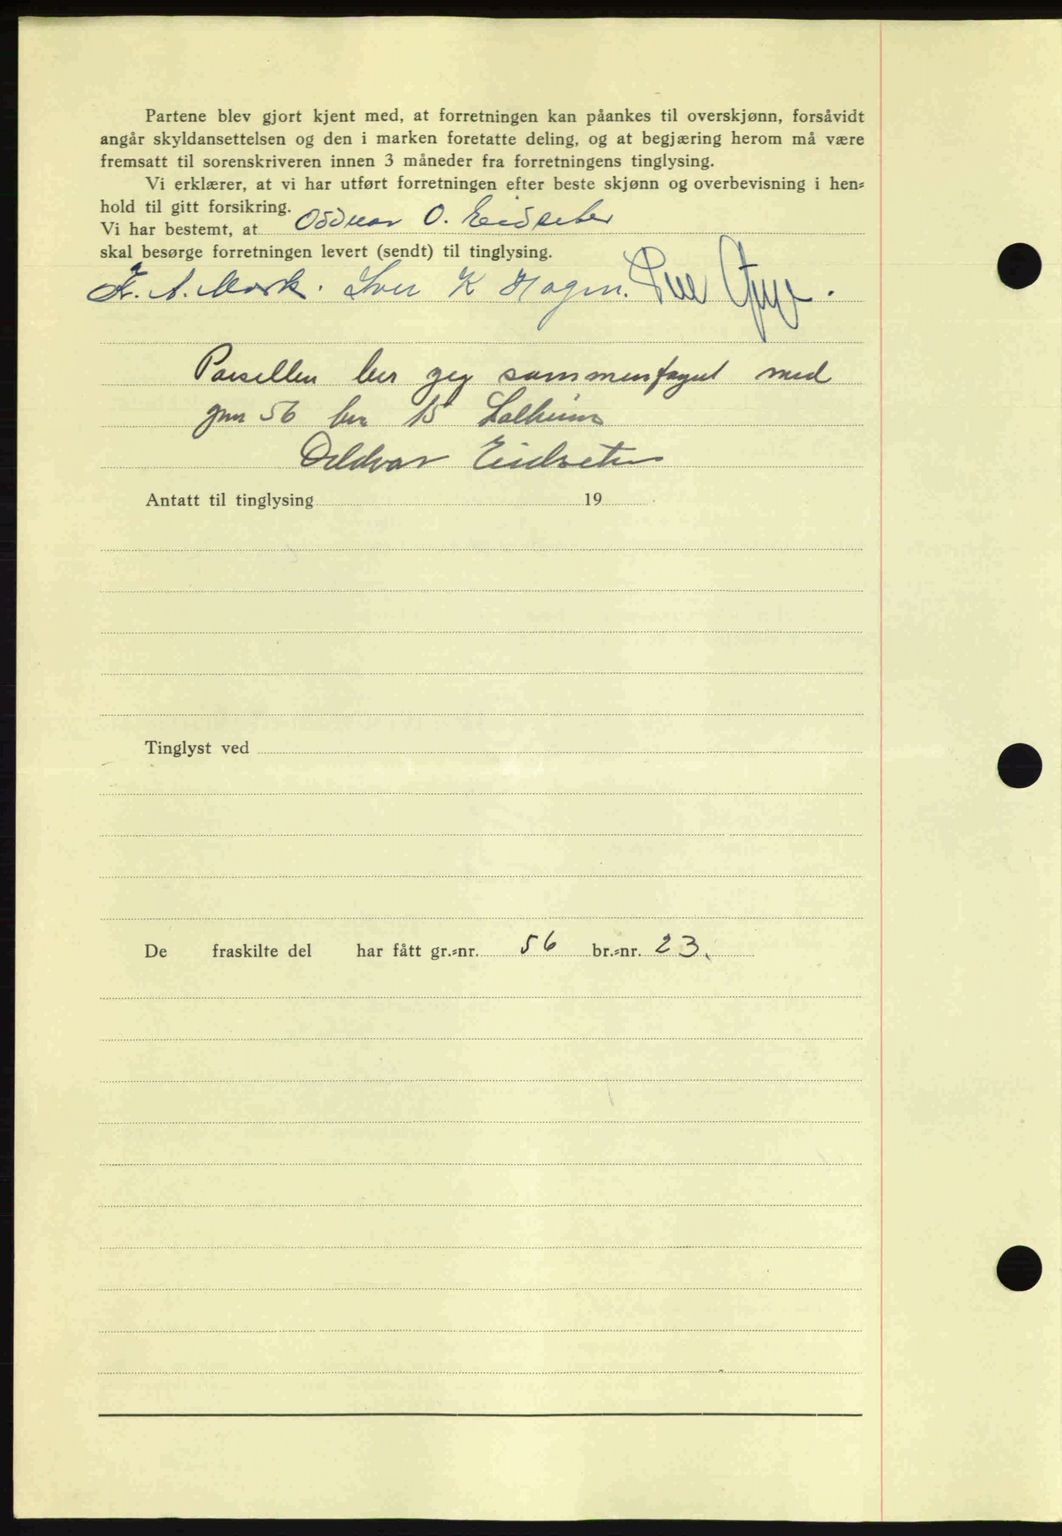 Partene blev gjort kjent med, at forretningen kan påankes til overskjønn, forsåvidt
angår skyldansettelsen og den i marken foretatte deling, og at begjæring herom må være
fremsatt til sorenskriveren innen 3 måneder fra forretningens tinglysing.
Vi erklærer, at vi har utført forretningen efter beste skjønn og overbevisning i hen=
hold til gitt forsikring.
Vi har bestemt, at Oddvar O. Eidseter
skal besørge forretningen levert (sendt) til tinglysing.
K. A. Mork. Iver K Hagen.
Parsellen ber jeg sammenføyet med
gnr 56 bnr 15 Solheim
Oddvar Eidseter
Antatt til tinglysing 19
Tinglyst ved
De fraskilte del har fått gr.=nr. 56 br.=nr. 23.